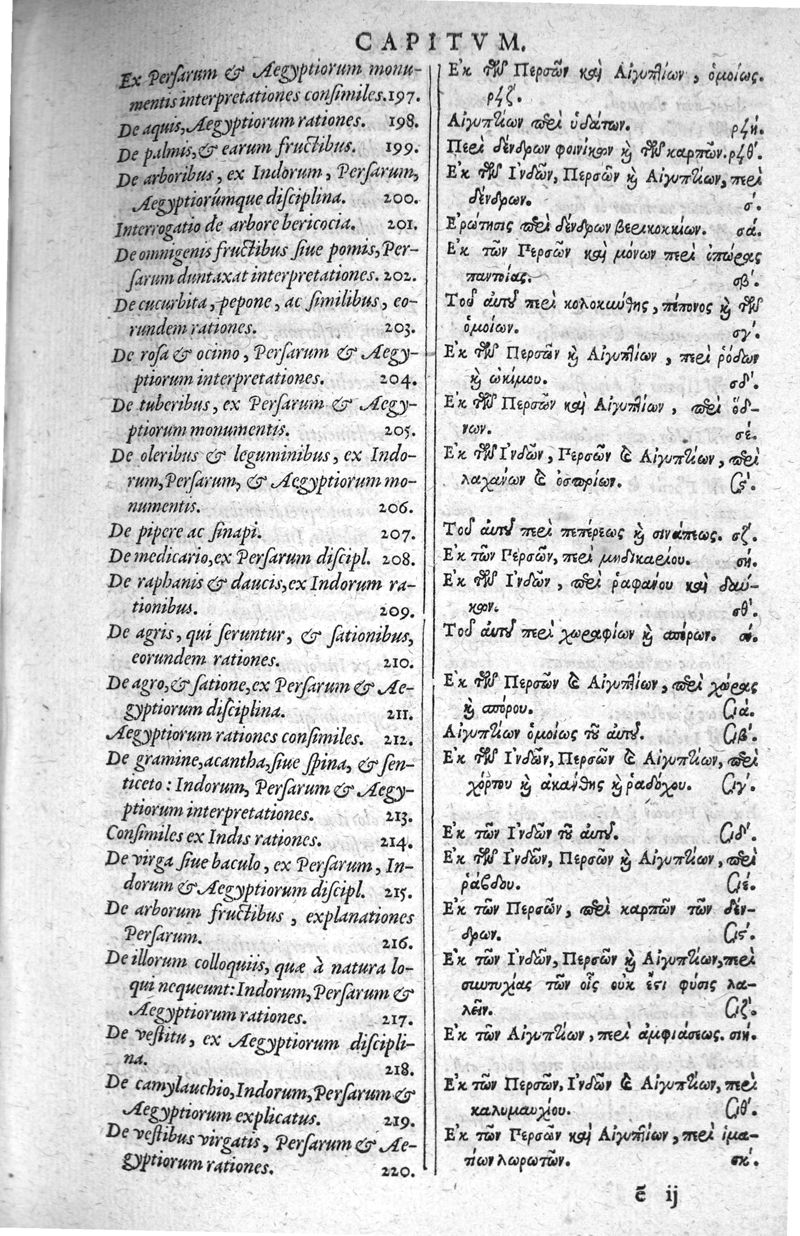 CAPITVM.
Ex Perſarum & Aegyptiorum monu-
mentis interpretationes conſimiles. 197.
De aquis, Aegyptiorum rationes. 198.
De palmis, & earum fructibus. 199.
De arboribus, ex Indorum, Perſarum,
Aegyptiorúmque diſciplina. 200.
Interrogatio de arbore bericocia. 201.
De omnigenis fructibus ſiue pomis, Per-
ſarum duntaxat interpretationes. 202.
De cucurbita, pepone, ac ſimilibus, eo-
rundem rationes. 203.
De roſa & ocimo, Perſarum & Aegy-
ptiorum interpretationes. 204.
De tuberibus, ex Perſarum & Aegy-
ptiorum monumentis. 205.
De oleribus & leguminibus, ex Indo-
rum, Perſarum, & Aegyptiorum mo-
numentis. 206.
De pipere ac ſinapi. 207.
De medicario, ex Perſarum diſcipl. 208.
De raphanis & daucis, ex Indorum ra-
tionibus. 209.
De agris, qui ſeruntur, & ſationibus,
eorundem rationes. 210.
De agro, & ſatione, ex Perſarum & Ae-
gyptiorum diſciplina. 211.
Aegyptiorum rationes conſimiles. 212.
De gramine, acantha, ſiue ſpina, & ſen-
ticeto: Indorum, Perſarum & Aegy-
ptiorum interpretationes. 213.
Conſimiles ex Indis rationes. 214.
De virga ſiue baculo, ex Perſarum, In-
dorum & Aegyptiorum diſcipl. 215.
De arborum fructibus, explanationes
Perſarum. 216.
De illorum colloquiis, quæ à natura lo-
qui nequeunt: Indorum, Perſarum &
Aegyptiorum rationes. 217.
De veſtitu, ex Aegyptiorum diſcipli-
na. 218.
De camylauchio, Indorum, Perſarum &
Aegyptiorum explicatus. 219.
De veſtibus virgatis, Perſarum & Ae-
gyptiorum rationes. 220.
Ἐκ τῶν Περσῶν καὶ Αἰγυπτίων, ὁμοίως.
ρϟζʹ.
Αἰγυπτίων περὶ ὑδάτων. ρϟή.
Περὶ δένδρων φοινίκων καὶ τῶν καρπῶν. ρϟθʹ.
Ἐκ τῶν Ἰνδῶν, Περσῶν καὶ Αἰγυπτίων, περὶ
δένδρων. σʹ.
Ἐρώτησις περὶ δένδρων βερικοκκίων. σά.
Ἐκ τῶν Περσῶν καὶ μόνων περὶ ὀπώρας
παντοίας. σβʹ.
Τοῦ αὐτοῦ περὶ κολοκύνθης, πέπονος καὶ τῶν
ὁμοίων. σγʹ.
Ἐκ τῶν Περσῶν καὶ Αἰγυπτίων, περὶ ῥόδων
καὶ ὠκίμου. σδʹ.
Ἐκ τῶν Περσῶν καὶ Αἰγυπτίων, περὶ ὅδ-
νων. σέ.
Ἐκ τῶν Ἰνδῶν, Περσῶν καὶ Αἰγυπτίων, περὶ
λαχάνων καὶ ὀσπρίων. σϛʹ.
Τοῦ αὐτοῦ περὶ πεπέρεως καὶ σινάπεως. σζʹ.
Ἐκ τῶν Περσῶν, περὶ μηδικαρίου. σή.
Ἐκ τῶν Ἰνδῶν, περὶ ραφάνου καὶ δαύ-
κων. σθʹ.
Τοῦ αὐτοῦ περὶ χωραφίων καὶ σπόρων. σί.
Ἐκ τῶν Περσῶν καὶ Αἰγυπτίων, περὶ χώρας
καὶ σπόρου. σιά.
Αἰγυπτίων ὁμοίως τοῦ αὐτοῦ. σιβʹ.
Ἐκ τῶν Ἰνδῶν, Περσῶν καὶ Αἰγυπτίων, περὶ
χόρτου καὶ ἀκάνθης καὶ ῥαδόχου. σιγʹ.
Ἐκ τῶν Ἰνδῶν τοῦ αὐτοῦ. σιδʹ.
Ἐκ τῶν Ἰνδῶν, Περσῶν καὶ Αἰγυπτίων, περὶ
ῥάβδου. σιέ.
Ἐκ τῶν Περσῶν, περὶ καρπῶν τῶν δέν-
δρων. σιϛʹ.
Ἐκ τῶν Ἰνδῶν, Περσῶν καὶ Αἰγυπτίων, περὶ
συντυχίας τῶν οἷς οὐκ ἔστι φύσις λα-
λεῖν. σιζʹ.
Ἐκ τῶν Αἰγυπτίων, περὶ ἀμφιάσεως. σιή.
Ἐκ τῶν Περσῶν, Ἰνδῶν καὶ Αἰγυπτίων, περὶ
καλυμαυχίου. σιθʹ.
Ἐκ τῶν Περσῶν καὶ Αἰγυπτίων, περὶ ἱμα-
τίων λωρωτῶν. σκʹ.
ẽ ij